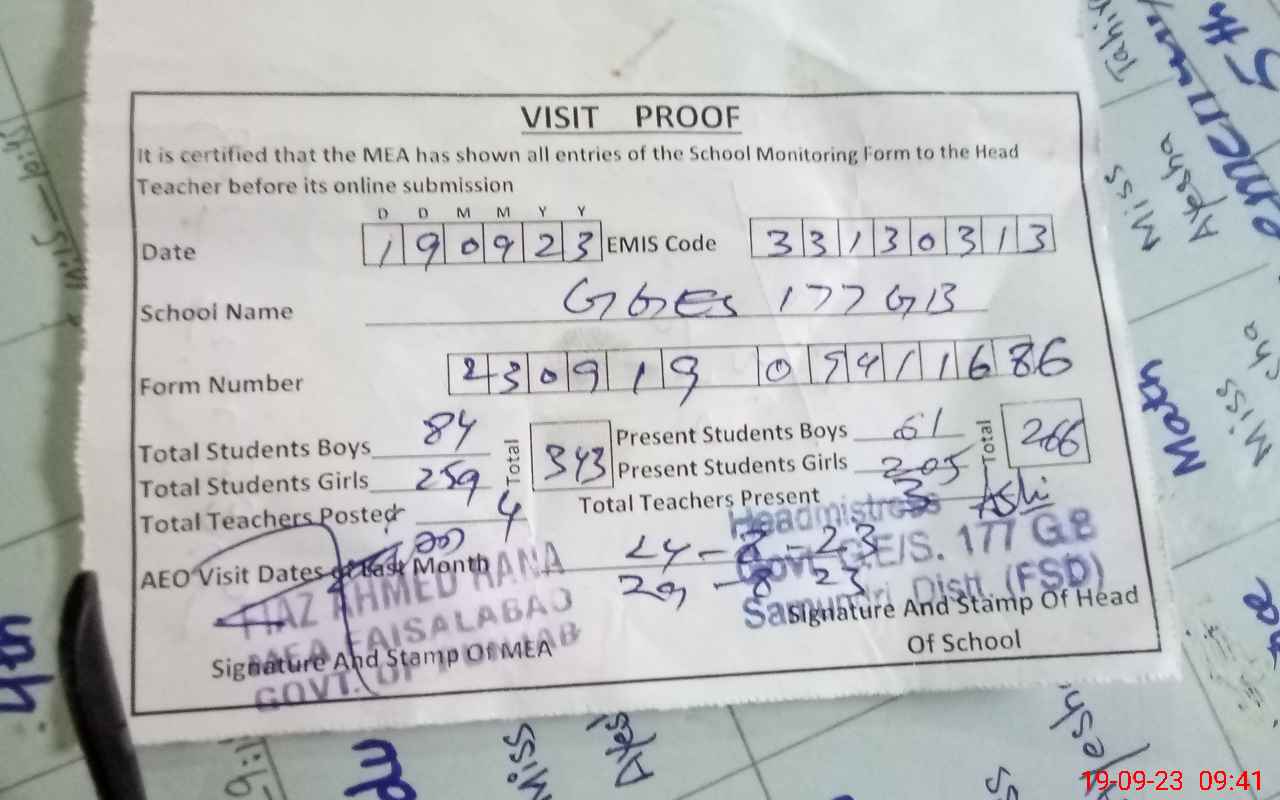 VISIT PROOF
It is certified that the MEA has shown all entries of the School Monitoring Form to the Head
Teacher before its online submission
D D M M Y Y
Date 190923 EMIS Code 33130313
School Name GGES 177 GB
Form Number 230919 09411686
Total Students Boys 84 Total 343 Present Students Boys 61 Total 266
Total Students Girls 259 Present Students Girls 205
Total Teachers Posted 4 Total Teachers Present 3
Headmistress
Govt. G.E/S. 177 GB
Samundri Distt. (FSD)
AEO Visit Dates of Last Month 24-8-23
29-8 23
AHMED RANA
MEA FAISALABAD
GOVT. OF PUNJAB
Signature And Stamp Of MEA
Signature And Stamp Of Head
Of School
Tahir
5th
Miss
Ayesha
Math
Miss
Miss
19-09-23 09:41